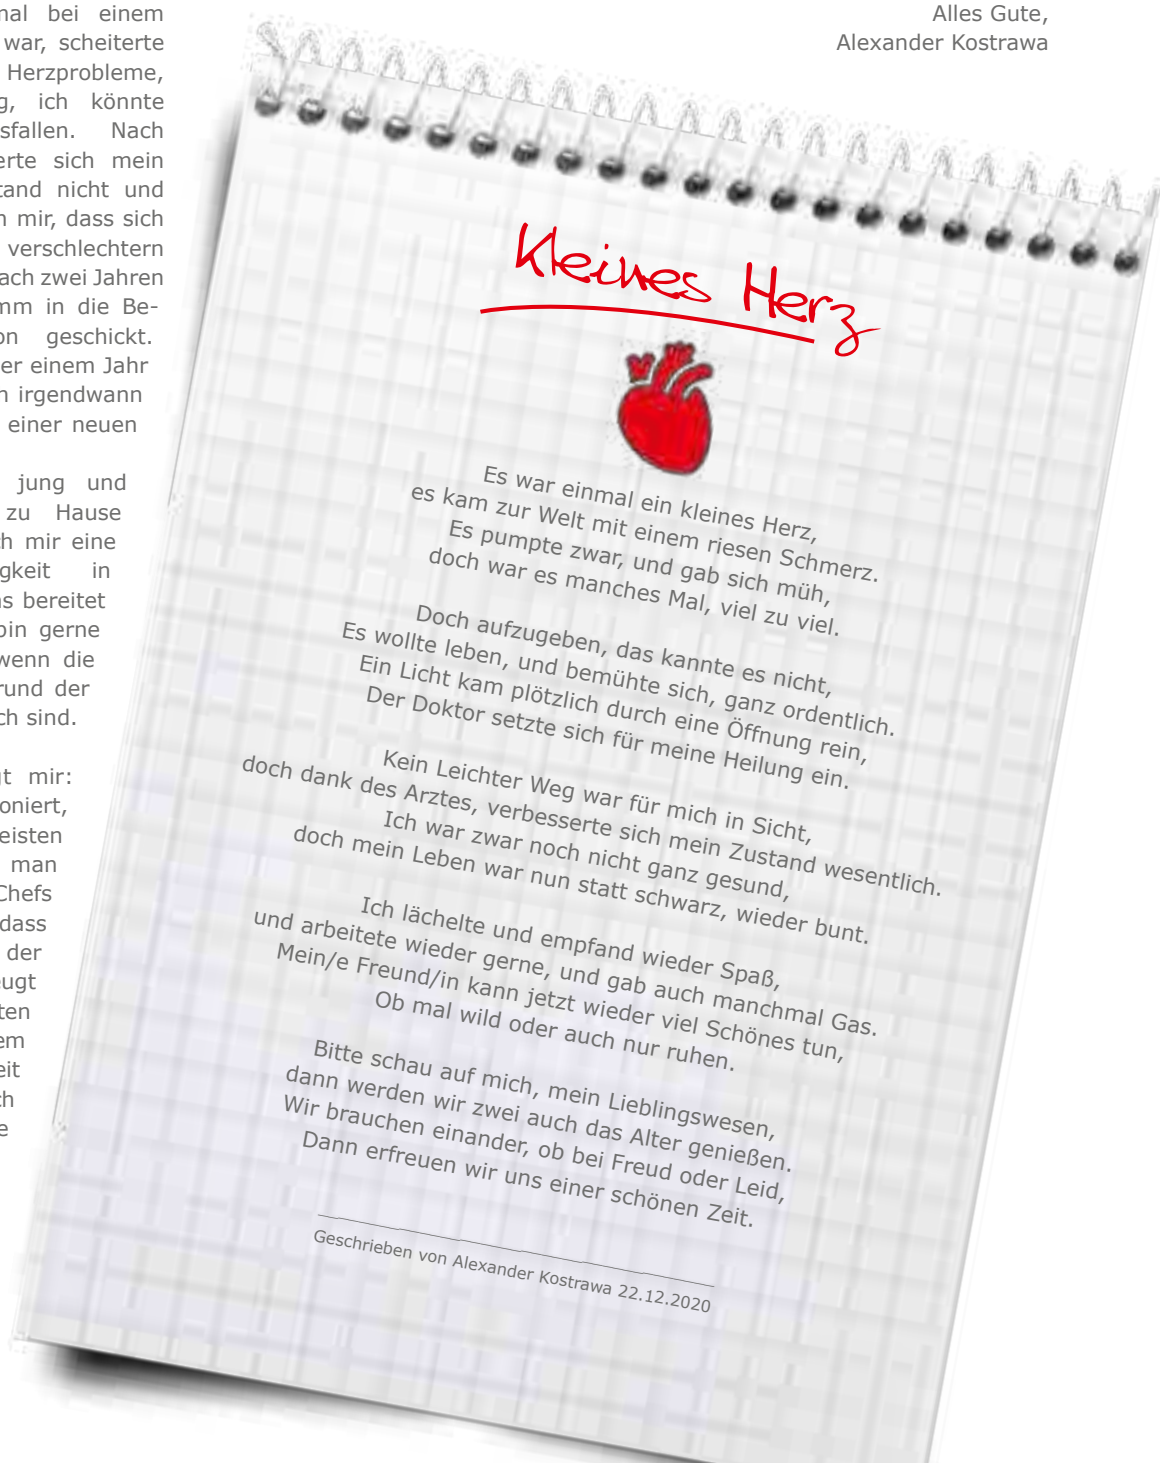 mal bei einem
war, scheiterte
Herzprobleme,
ich könnte
Nach
sich mein
nicht und
mir, dass sich
verschlechtern
zwei Jahren
in die Be-
geschickt.
einem Jahr
irgendwann
einer neuen
jung und
zu Hause
mir eine
in
bereitet
gerne
wenn die
der
sind.
mir:
man
Chefs
dass
der
Alles Gute,
Alexander Kostrawa
Kleines Herz
Es war einmal ein kleines Herz,
es kam zur Welt mit einem riesen Schmerz.
Es pumpte zwar, und gab sich müh,
doch war es manches Mal, viel zu viel.
Doch aufzugeben, das kannte es nicht,
Es wollte leben, und bemühte sich, ganz ordentlich.
Ein Licht kam plötzlich durch eine Öffnung rein,
Der Doktor setzte sich für meine Heilung ein.
Kein Leichter Weg war für mich in Sicht,
doch dank des Arztes, verbesserte sich mein Zustand wesentlich.
Ich war zwar noch nicht ganz gesund,
doch mein Leben war nun statt schwarz, wieder bunt.
Ich lächelte und empfand wieder Spaß,
und arbeitete wieder gerne, und gab auch manchmal Gas.
Mein/e Freund/in kann jetzt wieder viel Schönes tun,
Ob mal wild oder auch nur ruhen.
Bitte schau auf mich, mein Lieblingswesen,
dann werden wir zwei auch das Alter genießen.
Wir brauchen einander, ob bei Freud oder Leid,
Dann erfreuen wir uns einer schönen Zeit.
Geschrieben von Alexander Kostrawa 22.12.2020